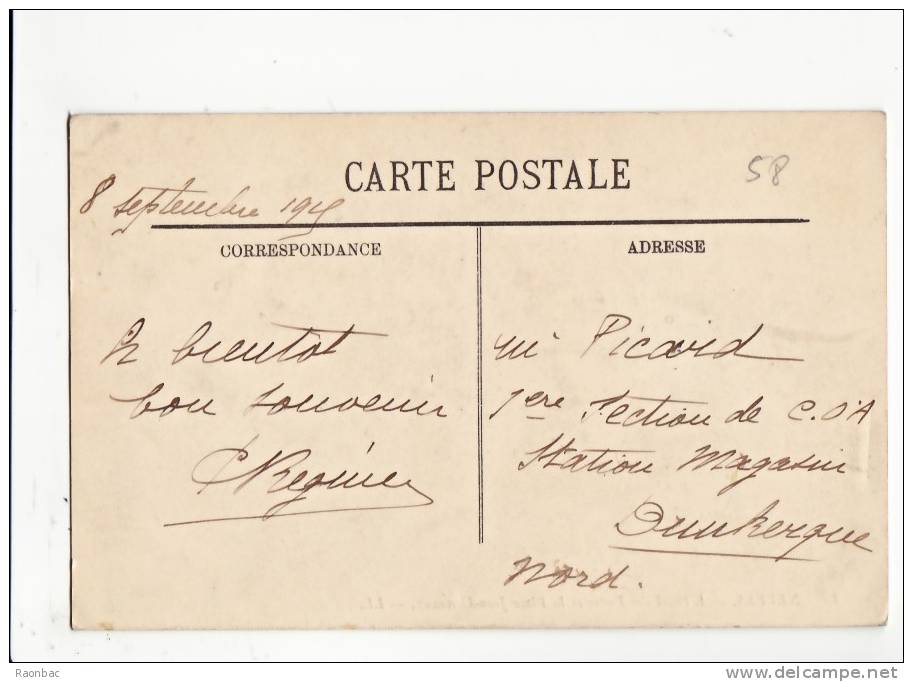 CARTE POSTALE
58
8 septembre 1915
CORRESPONDANCE
ADRESSE
A bientot
bon souvenir
Regine
Mr Picard
1ere Section de C.O.A
Station Magasin
Dunkerque
Nord.
Raonbac
www.delcampe.net